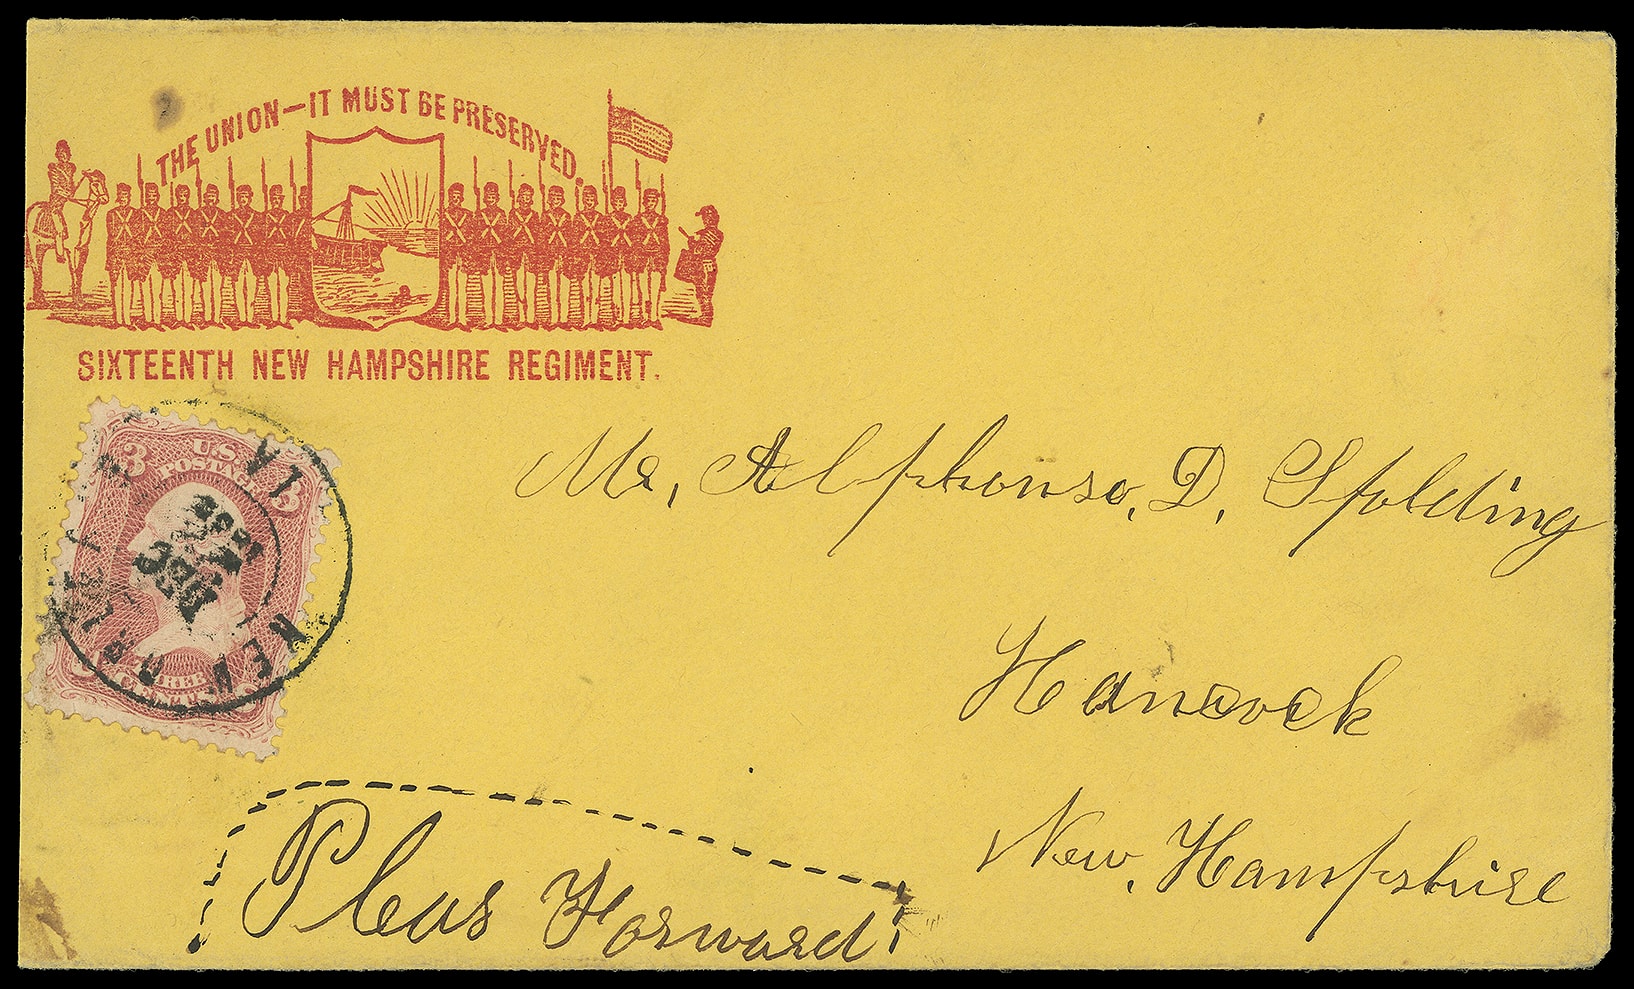 THE UNION—IT MUST BE PRESERVED.
SIXTEENTH NEW HAMPSHIRE REGIMENT.
3 U.S. 3
POSTAGE
THREE
CENTS
NEW ORLEANS LA
DEC
Mr, Alphonso, D, Spolding
Hancock
New, Hampshire
Pleas Forward